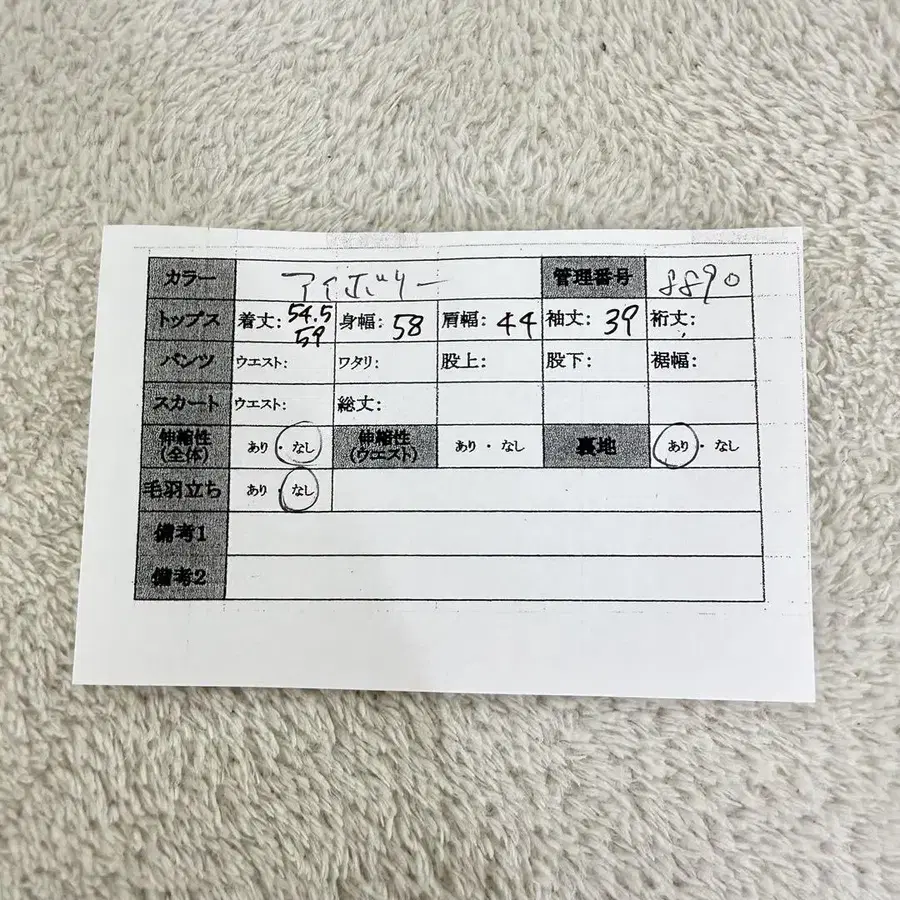 カラー アイボリー 管理番号 8890
トップス 着丈: 54.5 59 身幅: 58 肩幅: 44 袖丈: 39 裄丈:
パンツ ウエスト: ワタリ: 股上: 股下: 裾幅:
スカート ウエスト: 総丈:
伸縮性(全体) あり・なし 伸縮性(ウエスト) あり・なし 裏地 あり・なし
毛羽立ち あり・なし
備考1
備考2